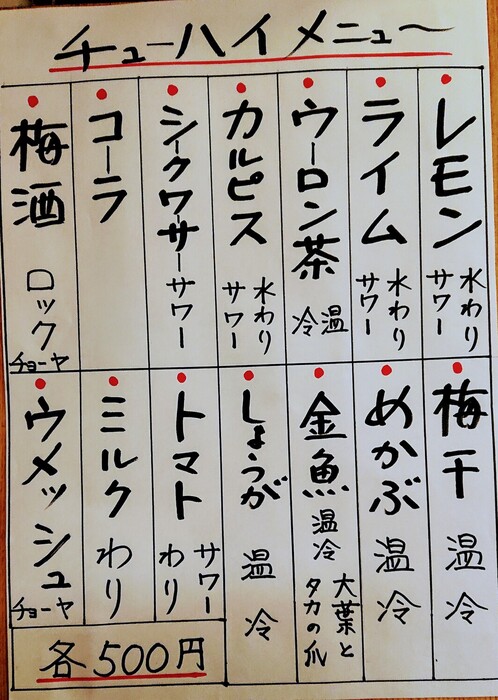 チューハイメニュ〜
レモン
水わり
サワー
ライム
水わり
サワー
ウーロン茶
温
冷
カルピス
水わり
サワー
シークワサーサワー
コーラ
梅酒
ロック
チョーヤ
梅干
温
冷
めかぶ
温
冷
金魚
温
冷
大葉と
タカの爪
しょうが
温
冷
トマト
サワー
わり
ミルク
わり
ウメッシュ
チョーヤ
各500円